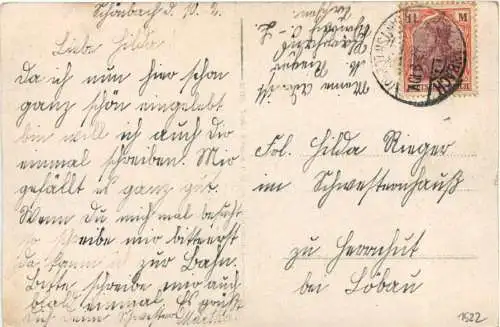 Schönbach d. 10. 2.
Liebe Hilda
Da ich nun hier schon
ganz schön eingelebt
bin will ich auch dir
einmal schreiben. Mir
gefällt es ganz gut.
Wenn Du mich mal besuchst
so schreibe mir bitte erst
da komm ich zur Bahn.
Bitte schreibe mir auch
bald einmal. Es grüßt
Dich Deine Schwester
Meine Adresse
M. Rieger
Frl. Hilda Rieger
im Schwesternhauß
zu Herrnhut
bei Löbau
1¼ M
1522